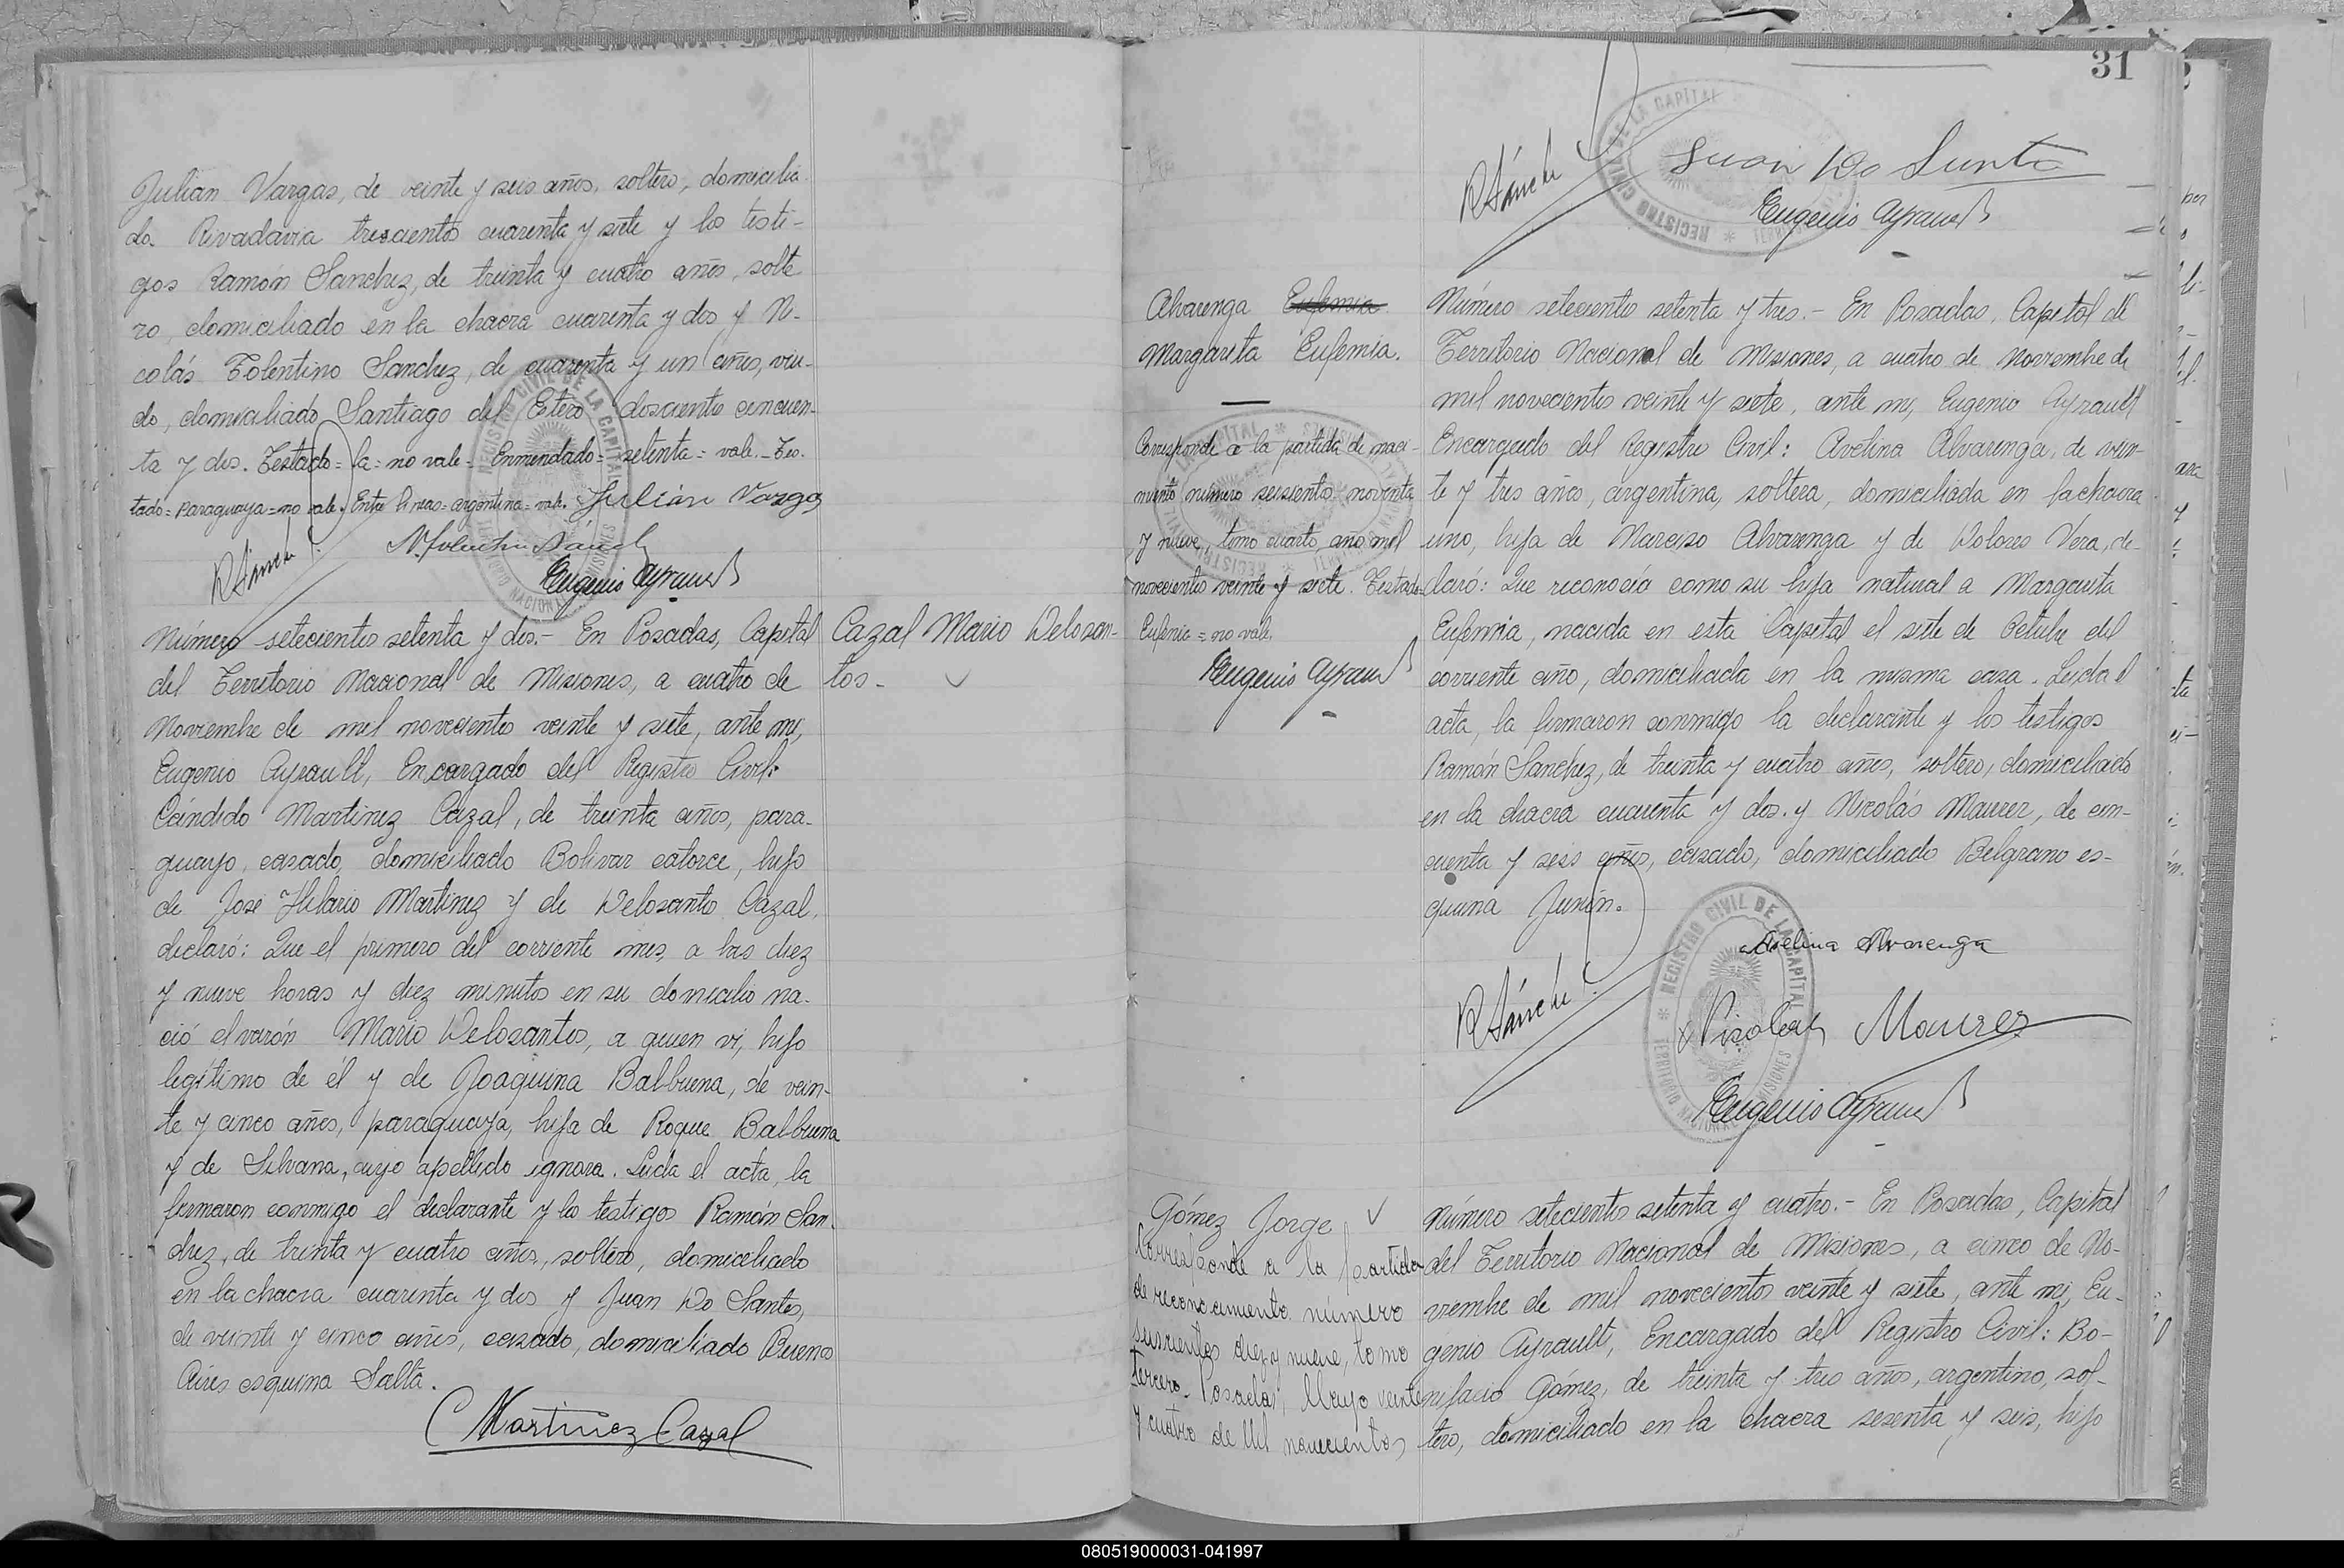 Julian Vargas, de veinte y seis años, soltero, domicilia-
do Rivadavia trescientos cuarenta y siete y los testi-
gos Ramón Sanchez, de treinta y cuatro años, solte
ro, domiciliado en la chacra cuarenta y dos y Ni-
colás Tolentino Sanchez, de cuarenta y un años, viu-
do, domiciliado Santiago del Estero doscientos cincuen-
ta y dos. Testado= la= no vale= Enmendado= setenta= vale.- Tes-
tado= paraguaya= no vale. Entre lineas= argentina= vale. Julián Vargas
R Sánchez
N. Tolentino Sánchez
Eugenio Ayrault
Número setecientos setenta y dos.- En Posadas, Capital
del Territorio Nacional de Misiones, a cuatro de
Noviembre de mil novecientos veinte y siete, ante mi,
Eugenio Ayrault, Encargado del Registro Civil:
Cándido Martinez Cazal, de treinta años, para-
guayo, casado, domiciliado Bolivar catorce, hijo
de José Hilario Martinez y de Delosantos Cazal,
declaró: Que el primero del corriente mes, a las diez
y nueve horas y diez minutos en su domicilio na-
ció el varón Mario Delosantos, a quien vi, hijo
legítimo de él y de Joaquina Balbuena, de vein-
te y cinco años, paraguaya, hija de Roque Balbuena
y de Silvana, cuyo apellido ignora. Leida el acta, la
firmaron conmigo el declarante y los testigos Ramón San-
chez, de treinta y cuatro años, soltero, domiciliado
en la chacra cuarenta y dos y Juan Do Santos,
de veinte y cinco años, casado, domiciliado Buenos
Aires esquina Salta.
C Martinez Cazal
Cazal Mario Delosan-
tos-
31
R Sánchez
Juan Do Santo
Eugenio Ayrault
Alvarenga Eufemia
Margarita Eufemia.
Corresponde a la partida de naci-
miento número seiscientos noventa
y nueve, tomo cuarto, año mil
novecientos veinte y siete. Testado=
Eufemia= no vale.
Eugenio Ayrault
Número setecientos setenta y tres.- En Posadas, Capital del
Territorio Nacional de Misiones, a cuatro de Noviembre de
mil novecientos veinte y siete, ante mi, Eugenio Ayrault
Encargado del Registro Civil: Avelina Alvarenga, de vein-
te y tres años, argentina, soltera, domiciliada en la chacra
uno, hija de Narciso Alvarenga y de Dolores Vera, de-
claró: Que reconocía como su hija natural a Margarita
Eufemia, nacida en esta Capital el siete de Octubre del
corriente año, domiciliada en la misma casa. Leida el
acta, la firmaron conmigo la declarante y los testigos
Ramón Sanchez, de treinta y cuatro años, soltero, domiciliado
en la chacra cuarenta y dos. y Nicolás Maurer, de cin-
cuenta y seis años, casado, domiciliado Belgrano es-
quina Junín.
Avelina Alvarenga
R Sánchez
Nicolas Maurer
Eugenio Ayrault
Gómez Jorge
Corresponde a la partida
de reconocimiento número
seiscientos diez y nueve, tomo
tercero- Posadas, Mayo veinte
y cuatro de Mil novecientos
Número setecientos setenta y cuatro.- En Posadas, Capital
del Territorio Nacional de Misiones, a cinco de No-
viembre de mil novecientos veinte y siete, ante mi, Eu-
genio Ayrault, Encargado del Registro Civil: Bo-
nifacio Gómez, de treinta y tres años, argentino, sol-
tero, domiciliado en la chacra sesenta y seis, hijo
080519000031-041997